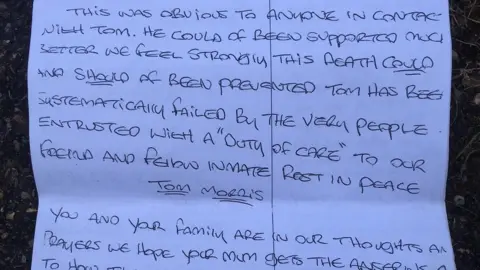 THIS WAS OBVIOUS TO ANYONE IN CONTAC
WITH TOM. HE COULD OF BEEN SUPPORTED MUCH
BETTER WE FEEL STRONGLY THIS DEATH COULD
AND SHOULD OF BEEN PREVENTED TOM HAS BEE
SYSTEMATICALLY FAILED BY THE VERY PEOPLE.
ENTRUSTED WITH A "DUTY OF CARE" TO OUR
FRIEND AND FELLOW INMATE REST IN PEACE
TOM MORRIS
YOU AND YOUR FAMILY ARE IN OUR THOUGHTS AN
PRAYERS WE HOPE YOUR MUM GETS THE ANSERWS
TO HOW